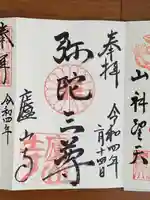 奉拝
令和四年
一月十四日
弥陀三尊
廬山寺
奉拝
令和四年
山科聖天